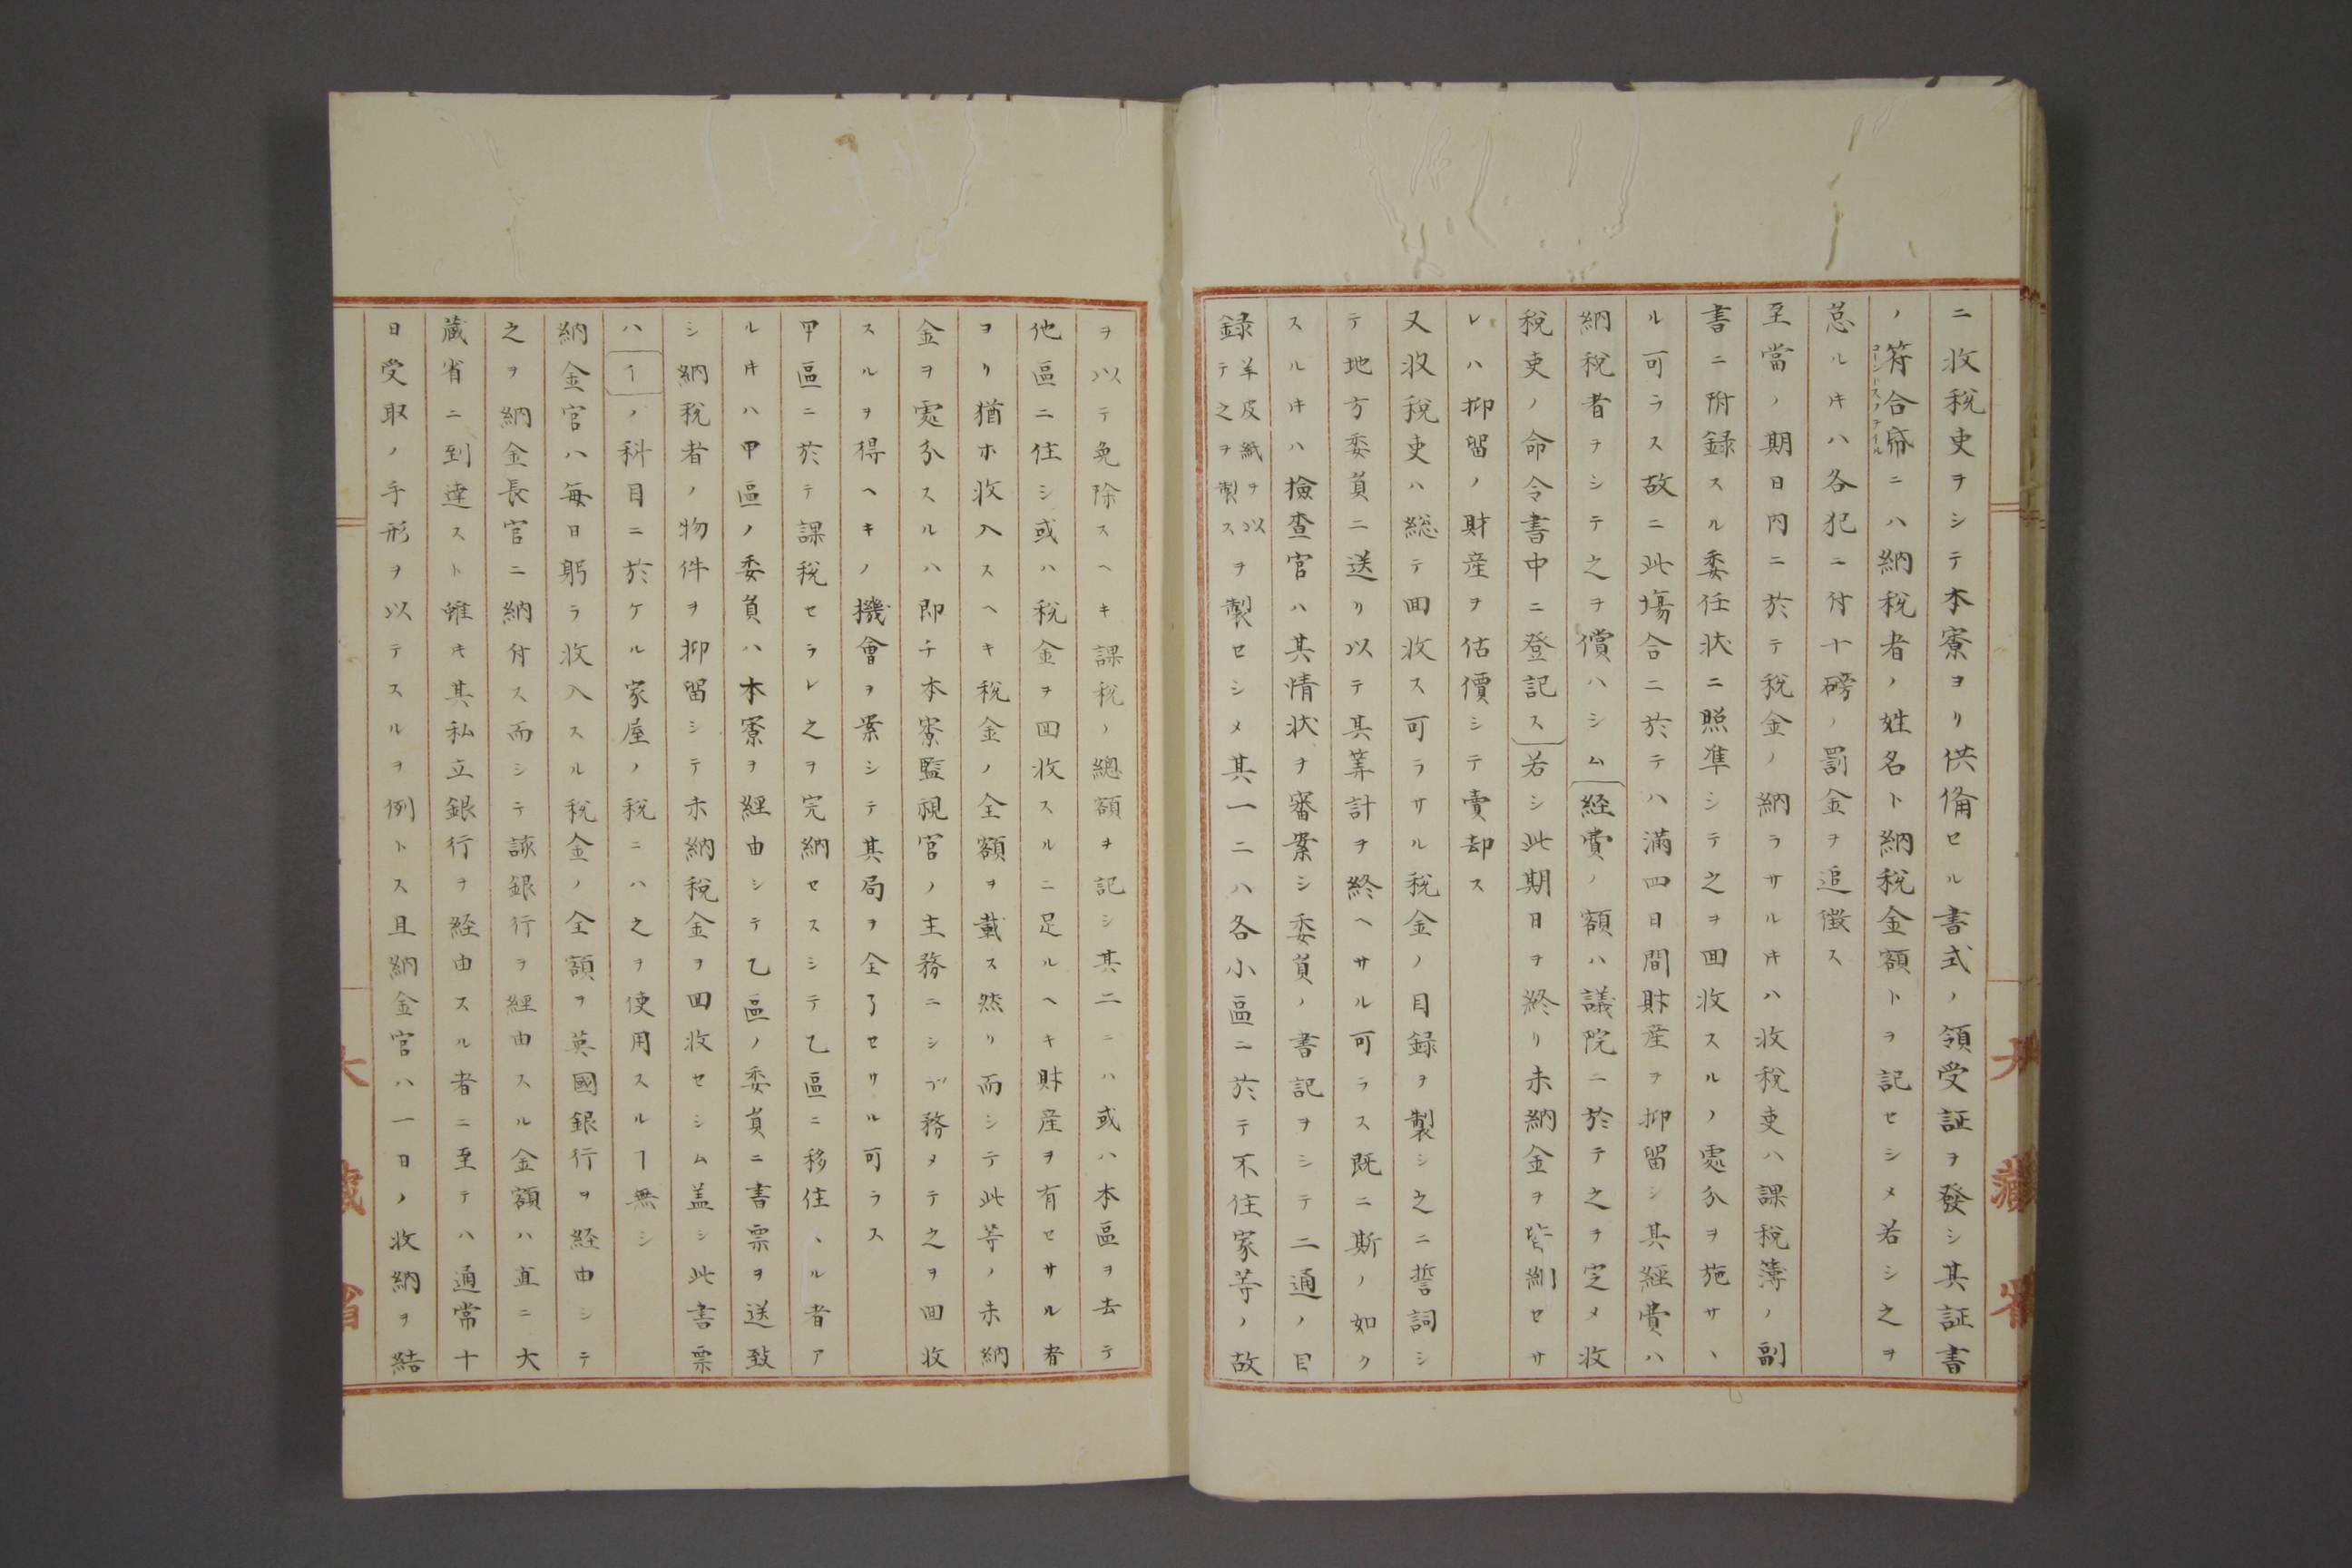 ニ收税吏ヲシテ本寮ヨリ供備セル書式ノ領受証ヲ發シ其証書
ノ符合帋ニハ納税者ノ姓名ト納税金額トヲ記セシメ若シ之ヲ
怠ルキハ各犯ニ付十磅ノ罰金ヲ追徴ス
至當ノ期日内ニ於テ税金ノ納ラサルキハ收税吏ハ課税簿ノ副
書ニ附録スル委任状ニ照準シテ之ヲ回收スルノ處分ヲ施サヽ
ル可ラス故ニ此場合ニ於テハ満四日間財産ヲ抑留シ其經費ハ
納税者ヲシテ之ヲ償ハシム〔経費ノ額ハ議院ニ於テ之ヲ定メ收
税吏ノ命令書中ニ登記ス〕若シ此期日ヲ終リ未納金ヲ皆納セサ
レハ抑留ノ財産ヲ估價シテ賣却ス
又收税吏ハ総テ回收ス可ラサル税金ノ目録ヲ製シ之ニ誓詞シ
テ地方委員ニ送リ以テ其筭計ヲ終ヘサル可ラス既ニ斯ノ如ク
スルキハ撿査官ハ其情状ヲ審案シ委員ノ書記ヲシテ二通ノ目
録羊皮紙ヲ以テ之ヲ製スヲ製セシメ其一ニハ各小區ニ於テ不住家等ノ故
ヲ以テ免除スヘキ課税ノ總額ヲ記シ其二ニハ或ハ本區ヲ去テ
他區ニ住シ或ハ税金ヲ回收スルニ足ルヘキ財産ヲ有セサル者
ヨリ猶ホ收入スヘキ税金ノ全額ヲ載ス然リ而シテ此等ノ未納
金ヲ處分スルハ即チ本寮監視官ノ主務ニシテ務メテ之ヲ回收
スルヲ得ヘキノ機會ヲ案シテ其局ヲ全了セサル可ラス
甲區ニ於テ課税セラレ之ヲ完納セスシテ乙區ニ移住ヽル者ア
ルキハ甲區ノ委員ハ本寮ヲ經由シテ乙區ノ委員ニ書票ヲ送致
シ納税者ノ物件ヲ抑留シテ未納税金ヲ回收セシム盖シ此書票
ハ〔イ〕ノ科目ニ於ケル家屋ノ税ニハ之ヲ使用スルヿ無シ
納金官ハ毎日躬ラ收入スル税金ノ全額ヲ英國銀行ヲ経由シテ
之ヲ納金長官ニ納付ス而シテ該銀行ヲ經由スル金額ハ直ニ大
蔵省ニ到達スト雖キ其私立銀行ヲ経由スル者ニ至テハ通常十
日受取ノ手形ヲ以テスルヲ例トス且納金官ハ一日ノ收納ヲ結
大藏省